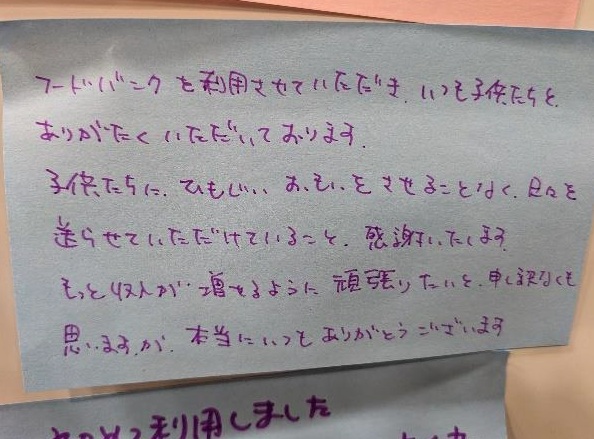 フードバンクを利用させていただき、いつも子供たちと、
ありがたくいただいております。
子供たちに、ひもじいおもいをさせることなく、日々を
送らせていただけていること、感謝いたします。
もっと収入が増せるように頑張りたいと、申し訳なくも
思いますが、本当にいつもありがとうございます
利用しました